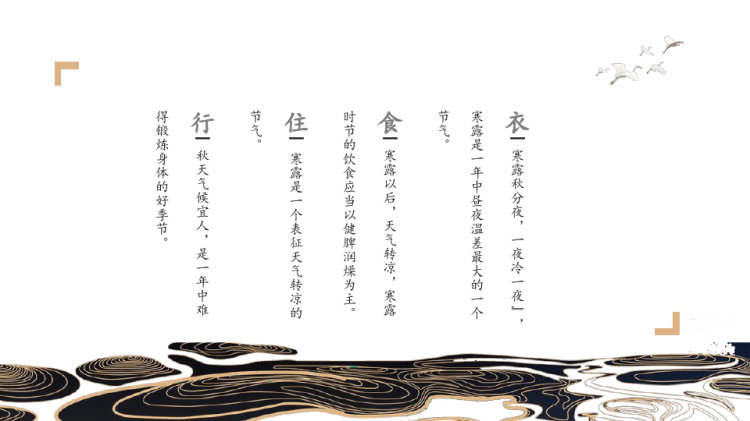 衣
寒露秋分夜，一夜冷一夜』，
寒露是一年中昼夜温差最大的一个
节气。
食
寒露以后，天气转凉，寒露
时节的饮食应当以健脾润燥为主。
住
寒露是一个表征天气转凉的
节气。
行
秋天气候宜人，是一年中难
得锻炼身体的好季节。